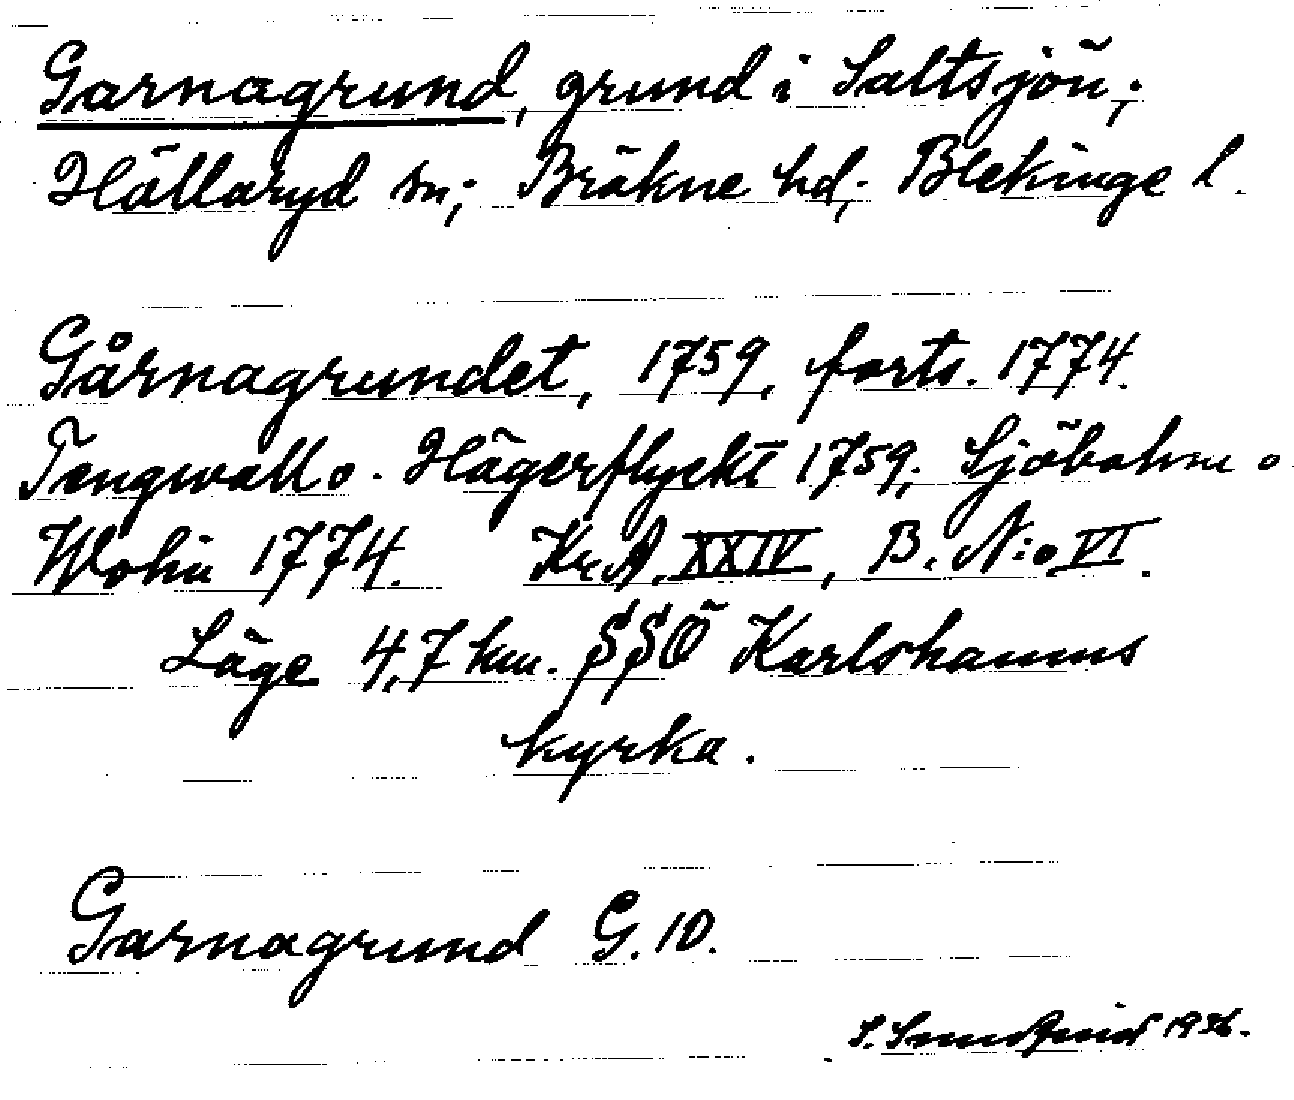 Garnagrund, grund i Saltsjön;
Hällaryd sn; Bräkne hd; Blekinge l.
Gårnagrundet, 1759, forts. 1774.
Tengwall o. Hägerflyckt 1759; Sjöbohm o
Wohn 1774. Kr.A. XXIV, B. N:o VI.
Läge 4,7 km. SSÖ Karlshamns
kyrka.
Garnagrund G. 10.
S. 1936.